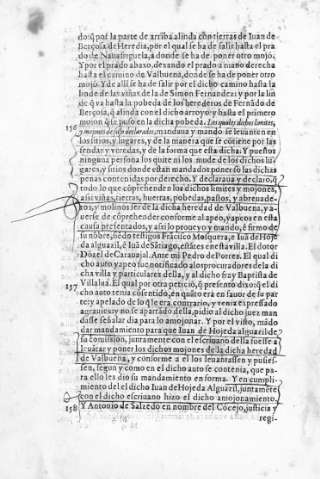 do q̃ por la parte de arriba alinda con tierras de Iuan de
Bergosa de Heredia, por el qual se ha de salir hasta el pra
do de Nauasiguela, a donde se ha de poner otro mojõ.
Y por el prado abaxo, dexando el prado a mano derecha
hasta el camino de Valbuena, donde se ha de poner otro
mojõ. Y de alli se ha de salir por el dicho camino hasta la
linde de las viñas de la de Simon Fernandez: y por la lin
de q̃ va hasta la pobeda de los herederos de Fernãdo de
Bergosa, q̃ alinda con el dicho arroyo y hasta el primero
mojon que puso en la dicha pobeda. Los quales dichos limites,
136
y mojones de suso declarados, mandaua y mando se leuanten en
los sitios, y lugares, y de la manera que se cõtiene por las
sendas y veredas, y de la forma que esta dicha. Y puestos
ninguna persona los quite ni los mude de los dichos lu-
gares, y sitios donde estan mandados poner so las dichas
penas contenidas por derecho. Y declaraua y declarò, q̃
todo lo que cõprehenden los dichos limites y mojones,
assi viñas, tierras, huertas, pobedas, pastos, y abreuade-
ros, y molinos ser de la dicha heredad de Valbuena, y a-
uerse de cõprehender conforme al apeo, y apeos en esta
causa presentados, y assi lo proueyo y mandò, è firmò de
su nõbre, siẽdo testigos Frãcisco Mosquera, è Iuã de Hoje
da alguazil, è Iuã de Sãtiago, estãtes en esta villa. El dotor
Dũzel de Carauajal. Ante mi Pedro de Porres. El qual di
cho auto y apeo fue notificado a los procuradores de la di
cha villa y particulares della, y al dicho fray Baptista de
Villalua. El qual por otra peticiõ, q̃ presento dixo: q̃ el di
137
cho auto tenia cõsentido, en quãto era en fauor de su par
te: y apelado de lo q̃ le era contrario, y tenia expressado
agrauios: y no se apartãdo della, pidio al dicho juez man
dasse señalar dia para lo amojonar. Y por el visto, mãdo
dar mandamiento para que Iuan de Hojeda alguazil de
su comission, juntamente con el escriuano della fuesse a
leuãtar y poner los dichos mojones de la dicha heredad
de Valbuena, y conforme a el los leuantassen y pusies-
sen, segun y como en el dicho auto se contenia, que pa-
ra ello les dio su mandamiento en forma. Y en cumpli-
miento del el dicho Iuan de Hojeda Alguazil, juntamẽte
con el dicho escriuano hizo el dicho amojonamiento.
138
Y Antonio de Salzedo en nombre del Cõcejo, justicia y
regi-